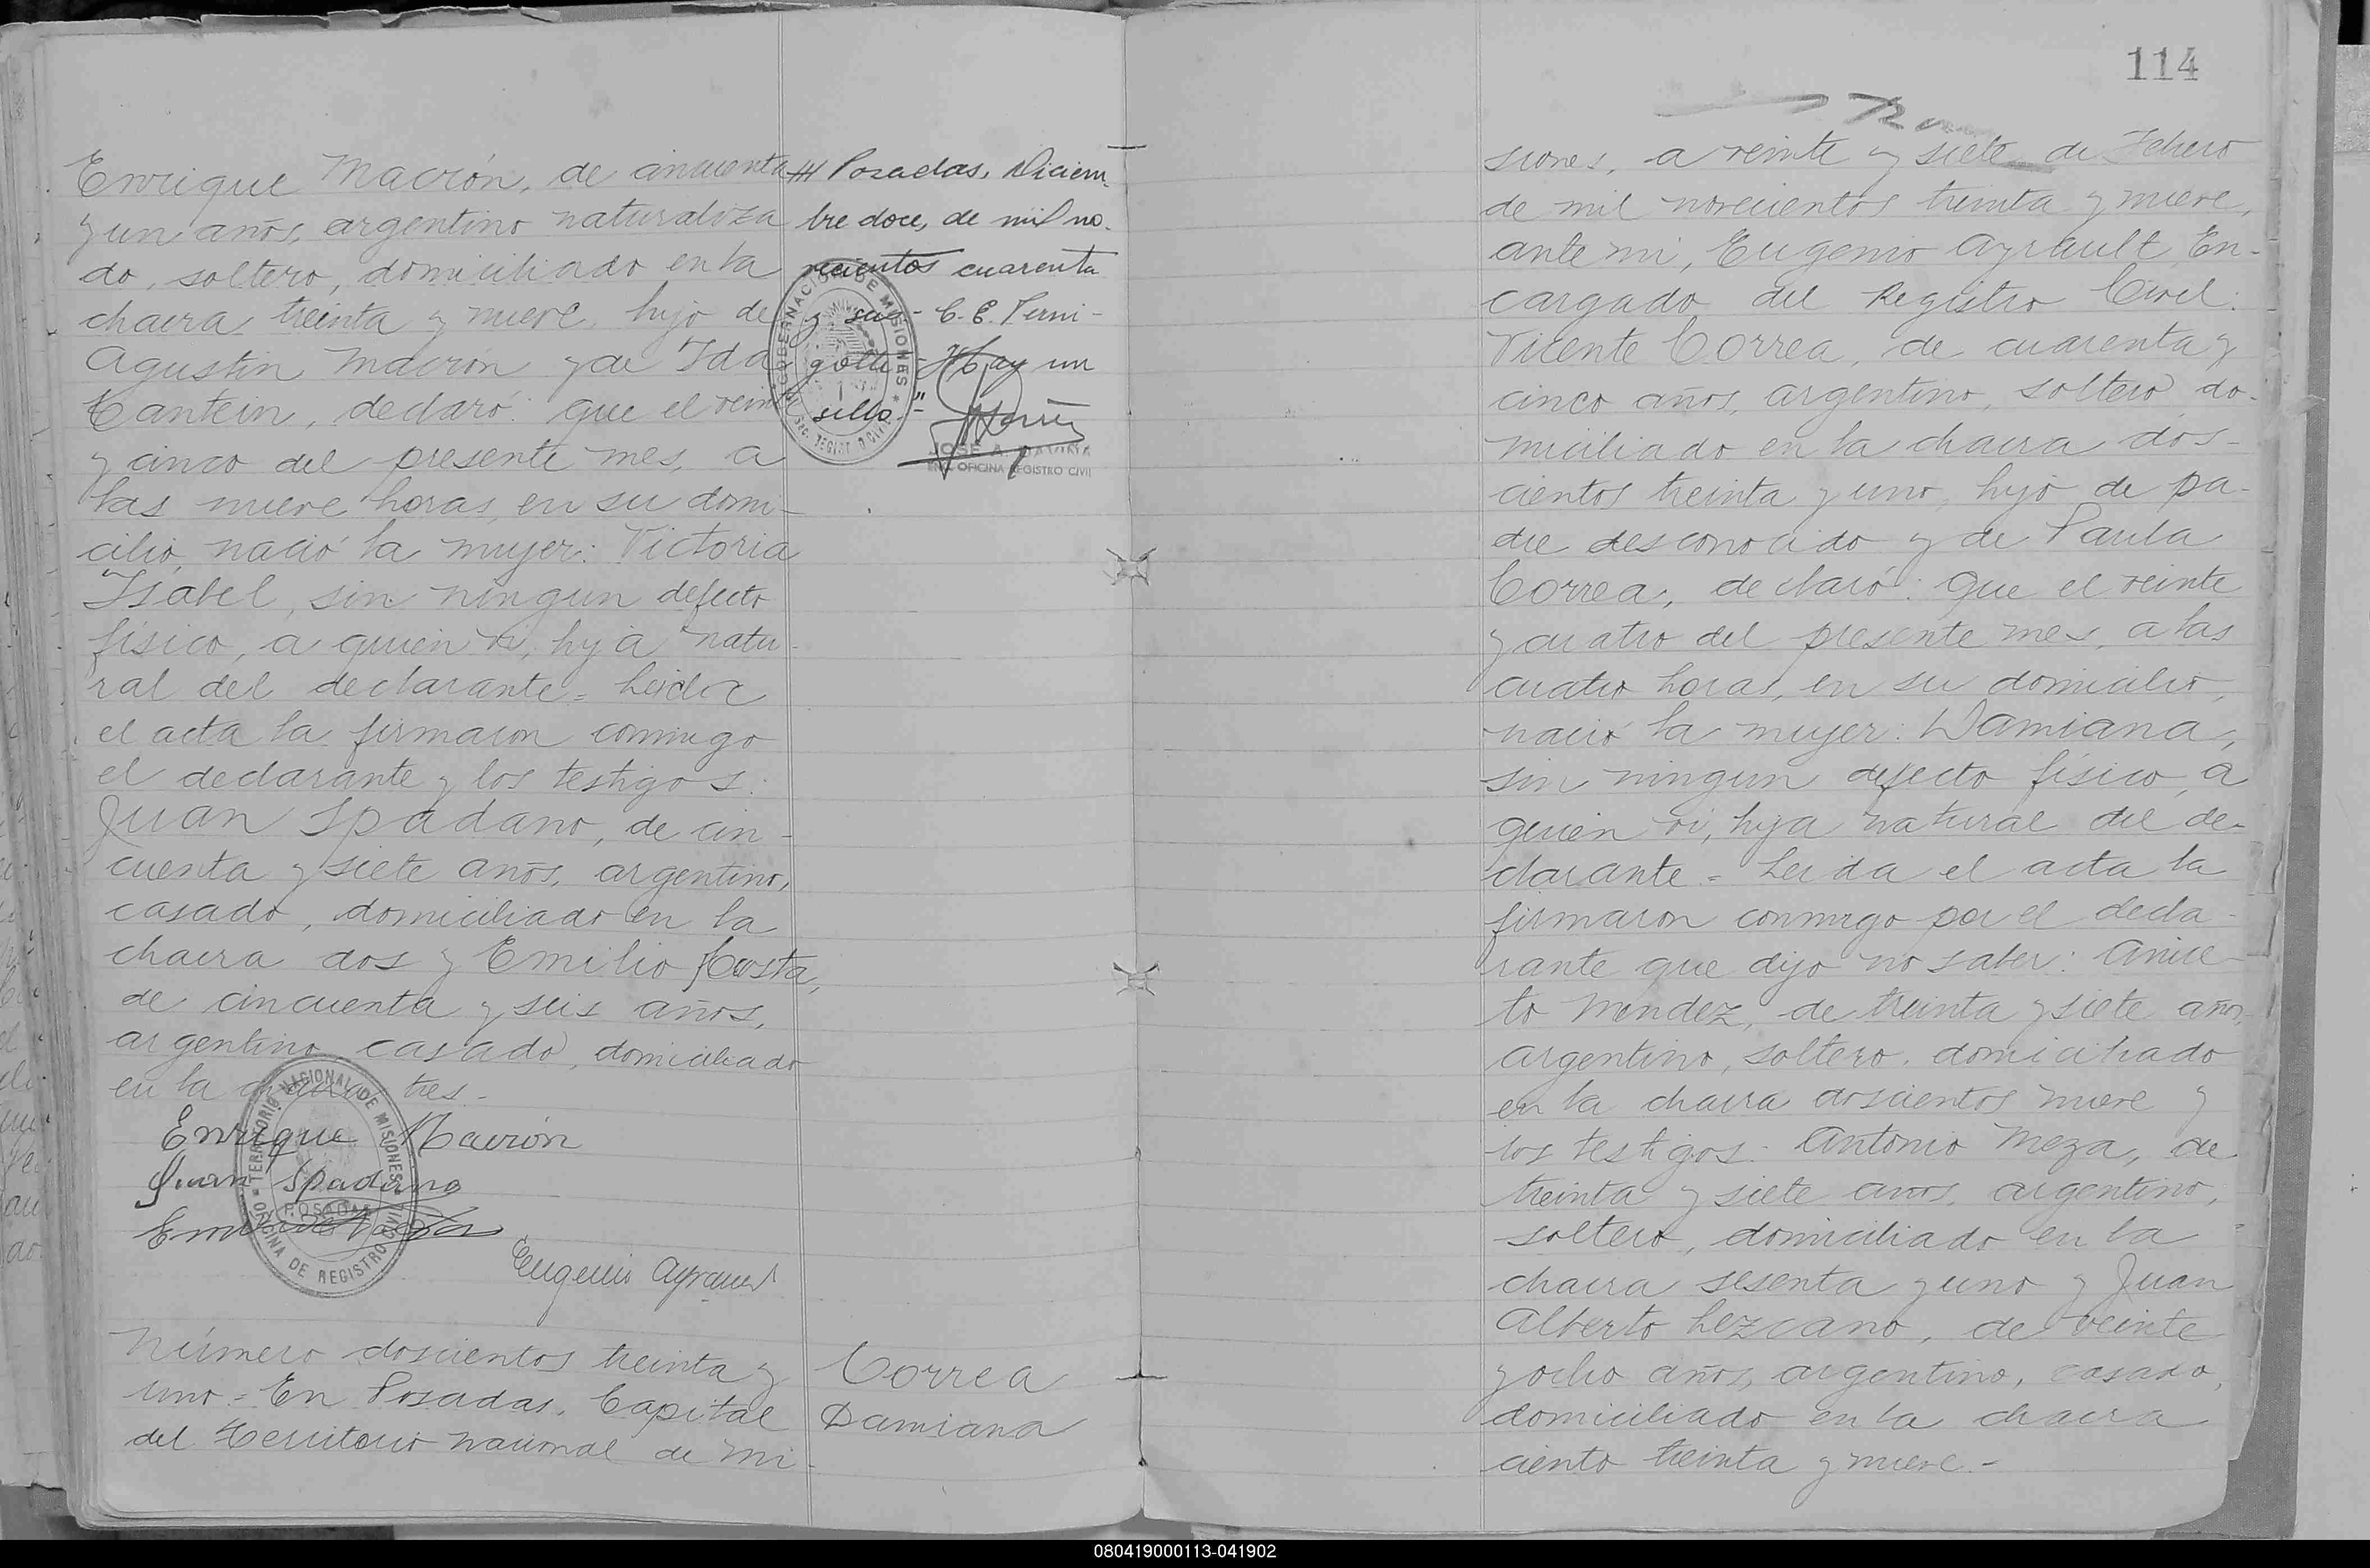 Enrique Macrón, de cincuenta
y un años, argentino naturaliza
do, soltero, domiciliado en la
chacra treinta y nueve, hijo de
Agustin Macrón y de Ida
Cantein, declaró: que el veinte
y cinco del presente mes, a
las nueve horas, en su domi-
cilio, nació la mujer: Victoria
Isabel, sin ningun defecto
físico, a quien vi, hija natu-
ral del declarante = Leida
el acta la firmaron conmigo
el declarante y los testigos:
Juan Spadano, de cin-
cuenta y siete años, argentino,
casado, domiciliado en la
chacra dos y Emilio Costa,
de cincuenta y seis años,
argentino casado, domiciliado
en la chacra tres -
Enrique Macrón
Juan Spadano
Eugenio Ayrault
TERRITORIO NACIONAL DE MISIONES
POSADAS
OFICINA DE REGISTRO CIVIL
Número doscientos treinta y
uno = En Posadas, Capital
del Territorio nacional de Mi-
/// Posadas, Diciem-
bre doce, de mil no-
vecientos cuarenta
y seis - C. E. Perni-
gotti - Hay un
sello -"
GOBERNACION DE MISIONES
JOSÉ A. DAVIÑA
ENC. OFICINA REGISTRO CIVIL
Correa
Damiana
114
siones, a veinte y siete de Febrero
de mil novecientos treinta y nueve,
ante mi, Eugenio Ayrault, En-
cargado del Registro Civil:
Vicente Correa, de cuarenta y
cinco años, argentino, soltero, do-
miciliado en la chacra dos-
cientos treinta y uno, hijo de pa-
dre desconocido y de Paula
Correa, declaró: que el veinte
y cuatro del presente mes, a las
cuatro horas, en su domicilio,
nació la mujer: Damiana,
sin ningun defecto físico, a
quien vi, hija natural del de-
clarante = Leida el acta la
firmaron conmigo por el decla-
rante que dijo no saber: Anice-
to Mendez, de treinta y siete años,
argentino, soltero, domiciliado
en la chacra doscientos nueve y
los testigos: Antonio Meza, de
treinta y siete años, argentino,
soltero, domiciliado en la
chacra sesenta y uno y Juan
Alberto Lezcano, de veinte
y ocho años, argentino, casado,
domiciliado en la chacra
ciento treinta y nueve.-
080419000113-041902